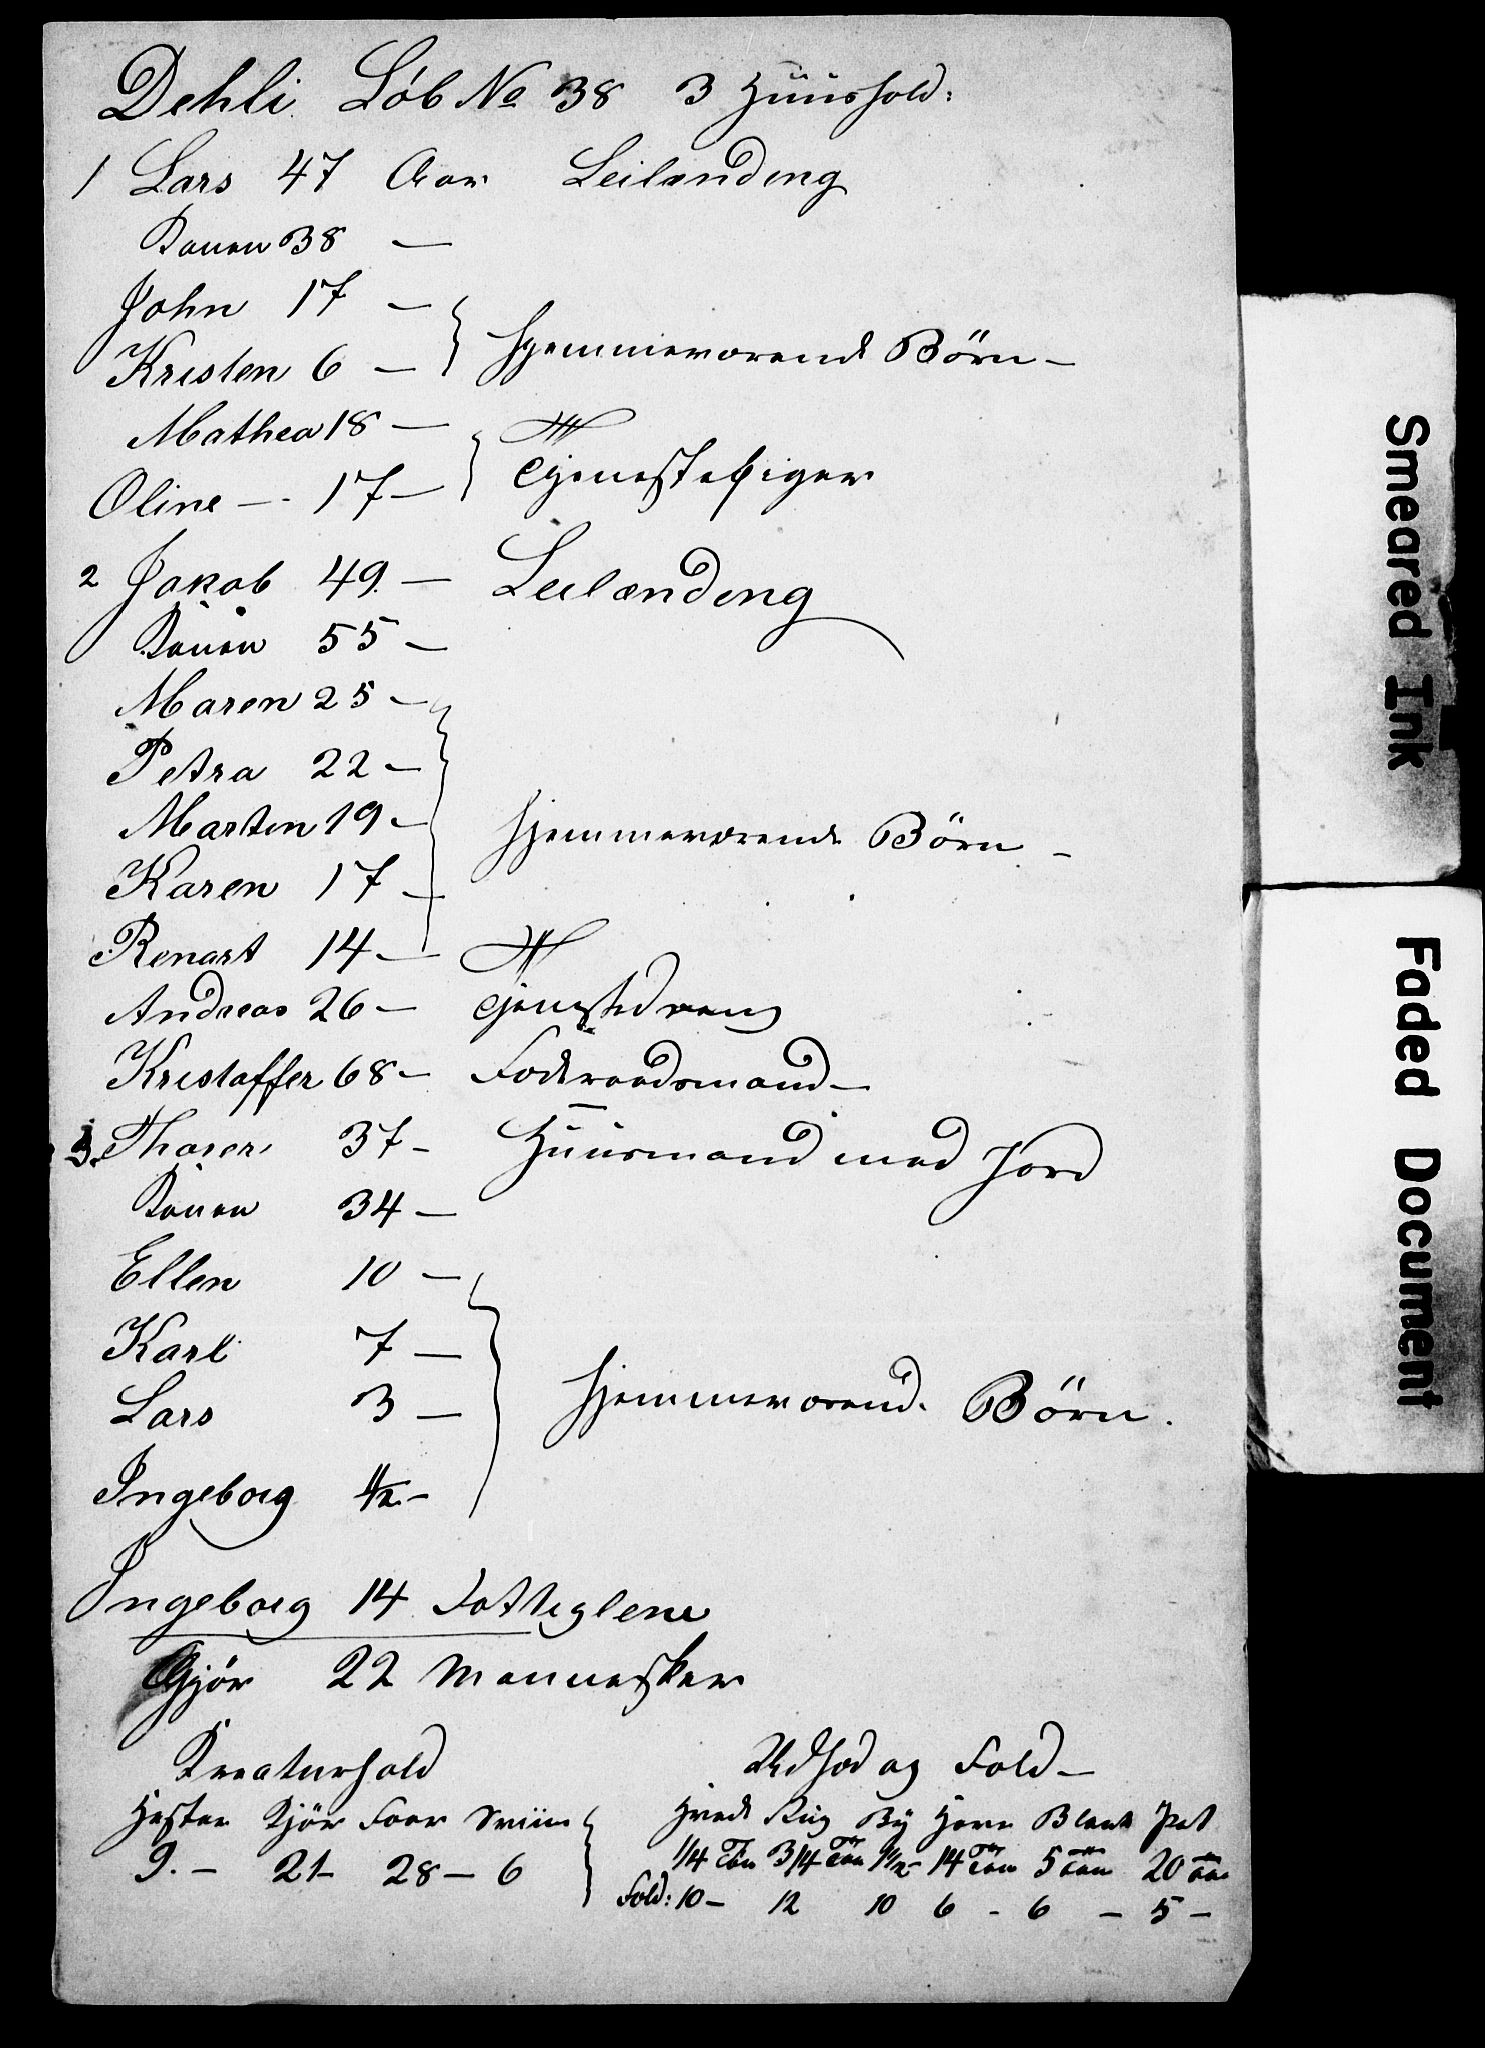 Dehli. Löb No 38 3 Huushold:
1 Lars 47 Aar Leilænding
Konen 38 —
John 17 —
Kristen 6 — } hjemmeværende Börn —
Mathea 18 —
Oline — 17 — } Tjenestepiger
2 Jakob 49. — Leilænding
Konen 55 —
Maren 25 —
Petra 22 —
Martin 19 — } hjemmeværende Börn —
Karen 17 —
Renart 14 —
Andreas 26 — Tjenestedreng
Kristoffer 68 — Foderaadsmand —
3. Thorer 37 — Huusmand med Jord
Konen 34 —
Ellen 10 —
Karl 7 —
Lars 3 — } hjemmeværend. Börn.
Ingeborg 1/2 —
Ingeborg 14 Fattiglem
Gjör 22 Mennesker
Kreaturhold
Udsæd og Fold —
Heste Kjör Faar Sviin
9. — 21 — 28 — 6
Hvede Rug Byg Havre Bland Pot
1/4 Tön 3/4 Tön 1 1/2 14 Tön 5 Tön 20 Tön
Fold: 10 — 12 10 6 — 6 — 5 —
Smeared Ink
Faded Document